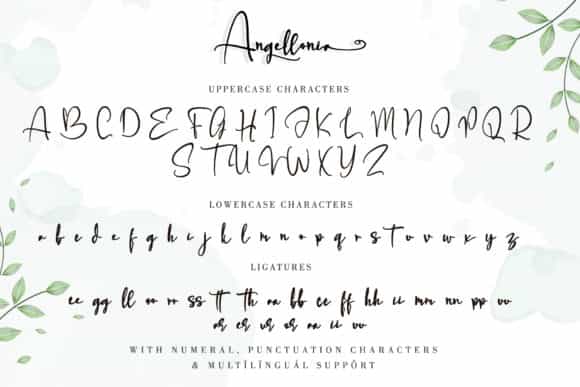 Angellonia
UPPERCASE CHARACTERS
A B C D E F G H I J K L M N O P Q R
S T U V W X Y Z
LOWERCASE CHARACTERS
a b c d e f g h i j k l m n o p q r s t u v w x y z
LIGATURES
ee gg ll oo rr ss tt th aa bb cc ff hh ii mm nn pp vv
or er ur ar an ii vv
WITH NUMERAL, PUNCTUATION CHARACTERS
& MULTĪLĪNGUÁL SUPPÔRT